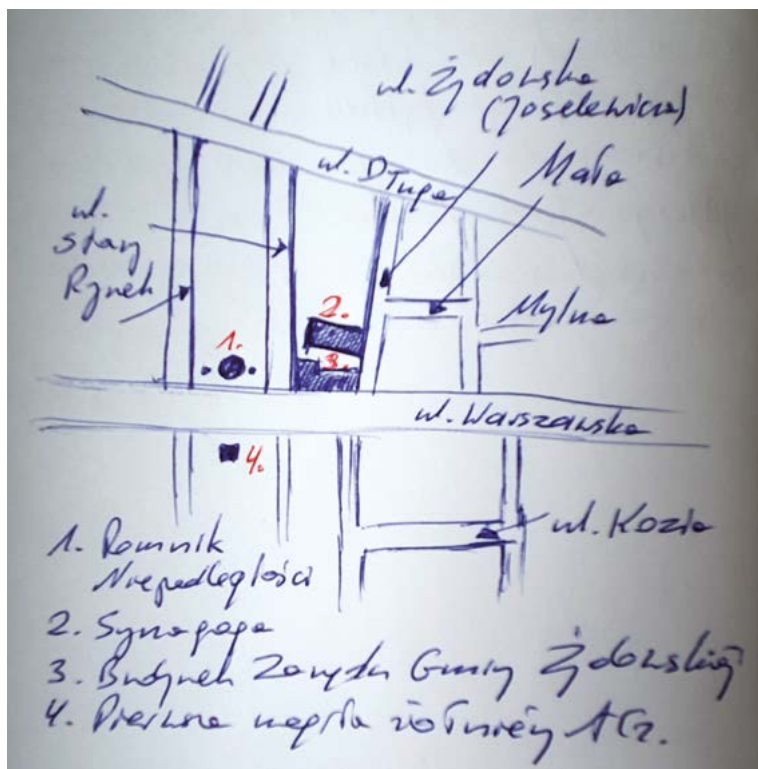 ul. Żydowska
(Joselewicza)
ul. Długa
Mała
ul.
Stary
Rynek
Mylna
2.
1.
3.
ul. Warszawska
4.
ul. Kozia
1. Pomnik
Niepodległości
2. Synagoga
3. Budynek Zarządu Gminy Żydowskiej
4. Pierwsza mogiła żołnierzy ACz.